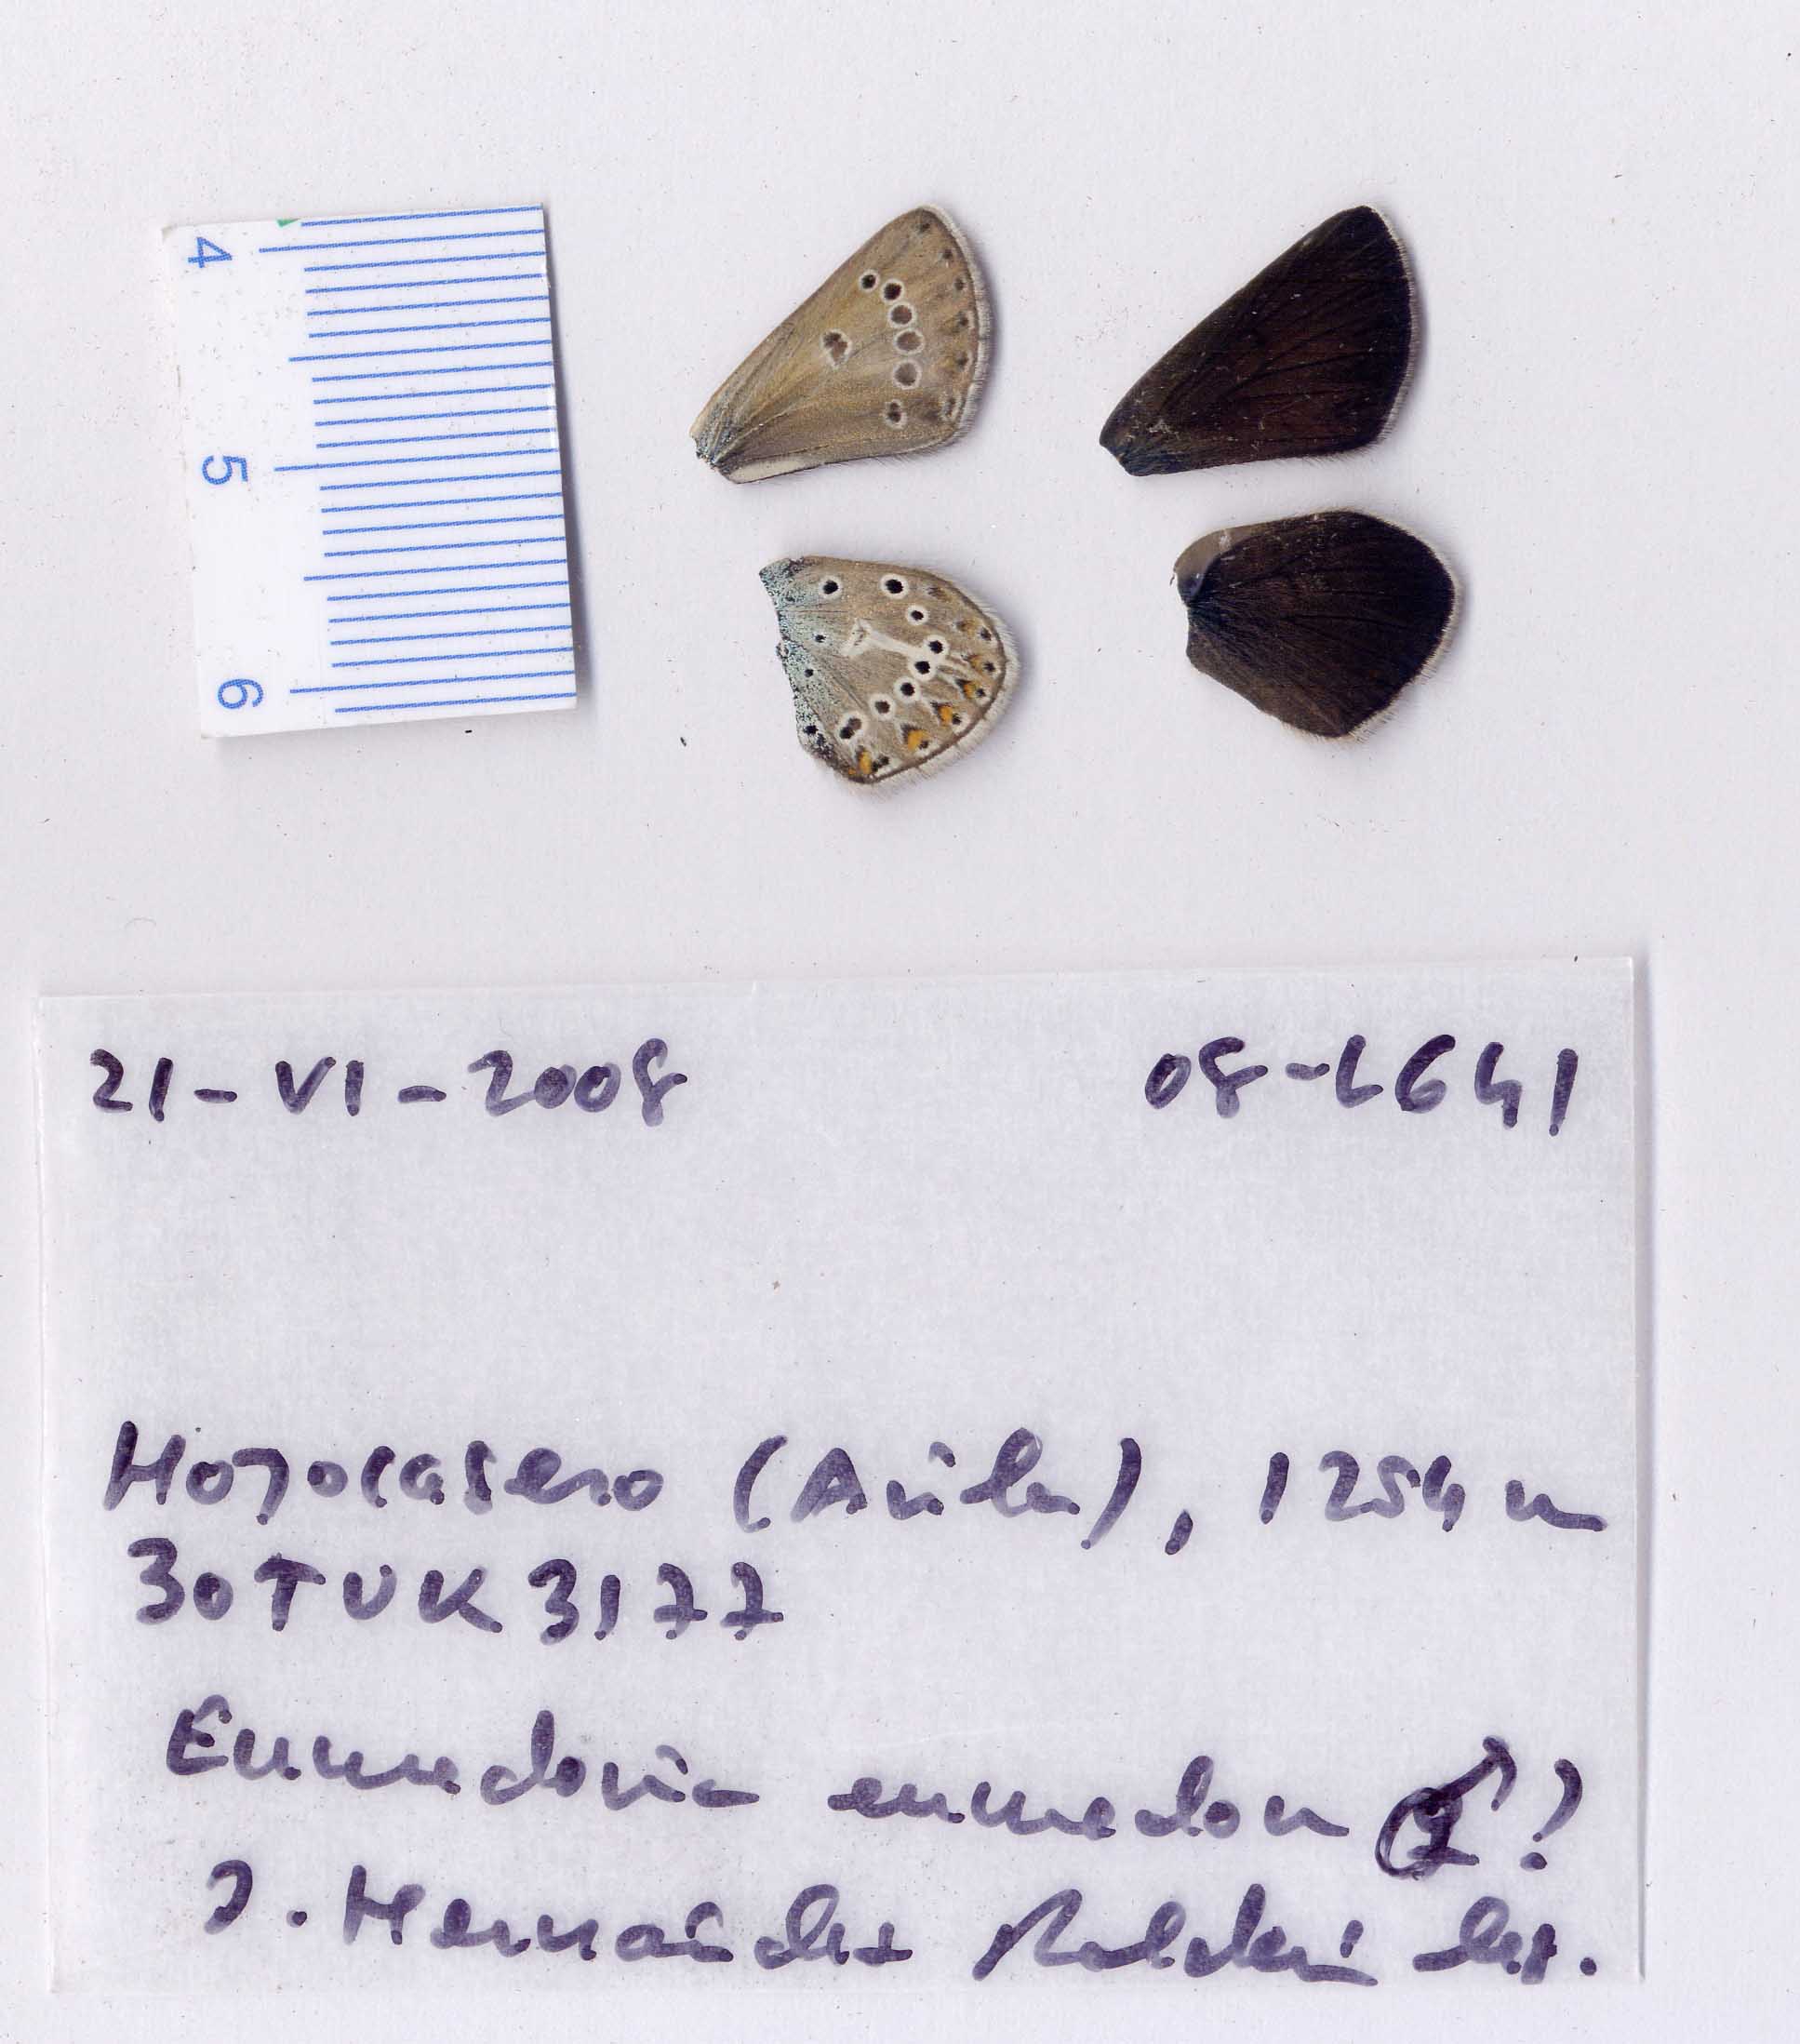 4
5
6
21-VI-2008 08-L641
Hoyocasero (Ávila), 1254 m
30TUK3177
Eumedonia eumedon ♂?
J. Hernández Roldán leg.